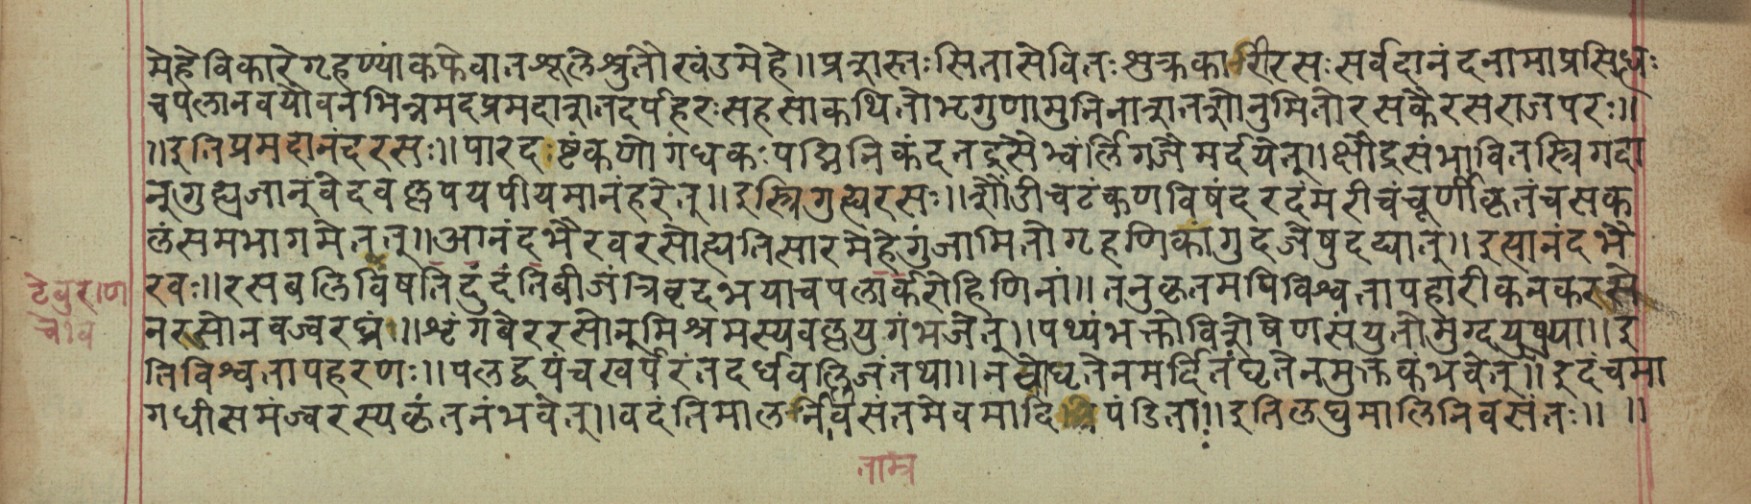 मेहेविकारेगृहण्यांकफेवातशूलेश्रुतौखंडमेहे॥प्रशस्तःसितासेवितःशुक्रकारीरसःसर्वदानंदनामाप्रसिद्धः
चपलानवयौवनभिन्नमदप्रमदाशतदर्पहरःसहसाकथितोष्टगुणामुनिनाशतशोनुमितोरसकैरसराजपरः॥
॥इतिप्रमदानंदरसः॥पारद टंकणोगंधकःपद्मिनिकंदनद्रसै लिंगजैमर्दयेत्॥क्षौद्रसंभावितस्त्रिगदा
नुगुह्यजान्वेदवल्लपयपीयमानंहरेत्॥इस्त्रिगुह्यरसः॥शौंडीचटंकणविषंदरदंमरीचंचूर्णीकृतंचसक
लंसमभागमेतत्॥आनंदभैरवरसोह्यतिसारमेहेगुंजामितोगृहणिकांगुदजेषुदद्यात्॥इत्यानंदभै
रवः॥रसबलिविषतिंदुदंतिबीजंत्रिवृदभयाचपलार्करोहिणिनां॥तनुकृतमपिविश्वतापहारीकनकरसे
नरसोनवज्वरघ्नं॥शृंगवेररसोनुमिश्रमस्यवल्लयुगंभजेत्॥पथ्यंभक्तोविशेषेणसंयुतोमुग्दयुषया॥इ
तिविश्वतापहरणः॥पलद्वयंचखर्परंतदर्धवल्लिजंतथा॥नव्योघृतेनमर्दितंघृतेनमुक्तकंभवेत्॥इदंचमा
गधीसमंज्वरस्यकृंतनंभवेत्॥वदंतिमालनिवसंतमेवमादि पंडिताः॥इतिलघुमालिनिवसंतः॥ ॥
ताम्र